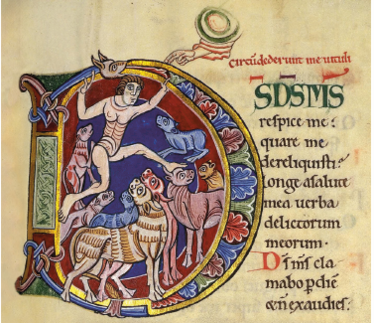 Circūdederunt me uituli
DS DS MS
respice me:
quare me
dereliquisti:
longe a salute
mea uerba
delictorum
meorum·
Ds̄ ms̄ cla
mabo p diē
& n̄ exaudies: